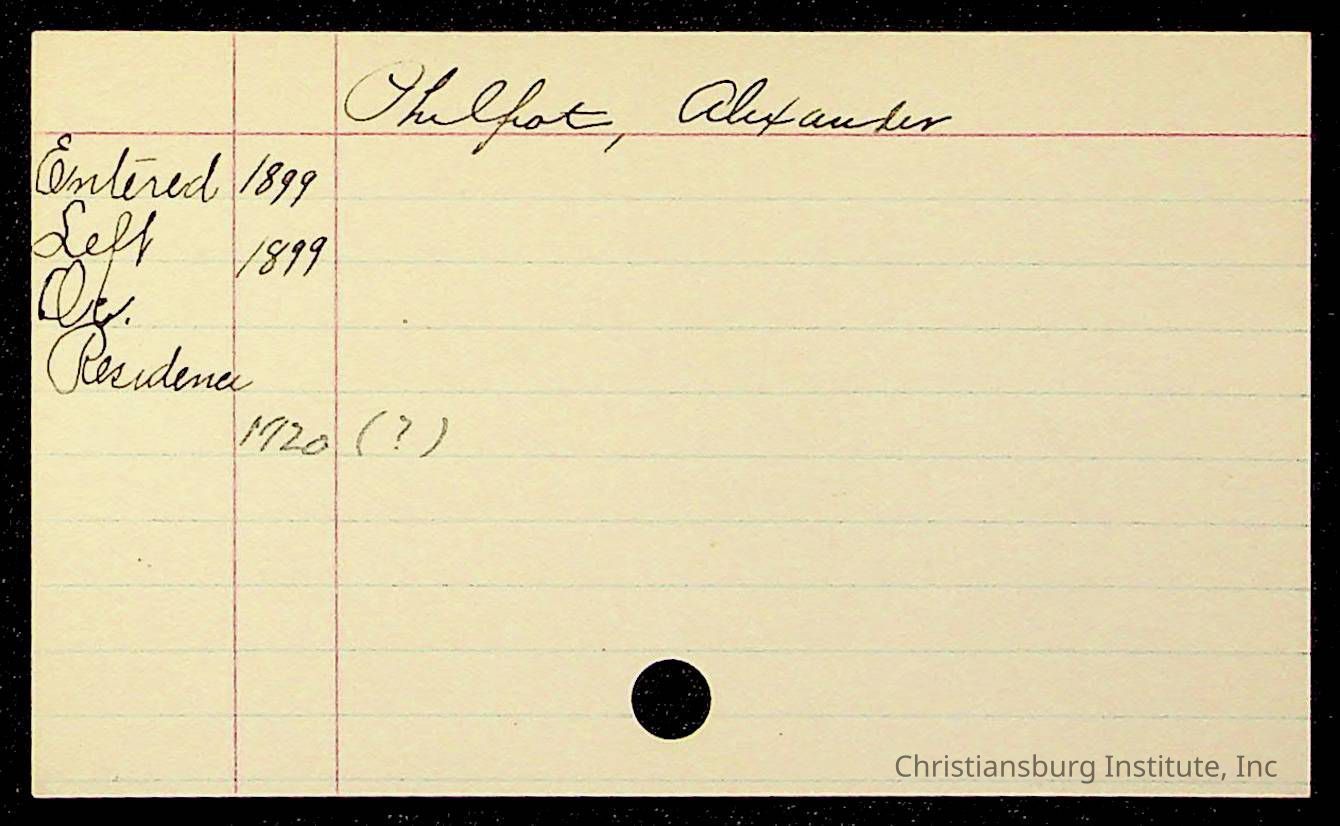 Philpot, Alexander
Entered 1899
Left 1899
Oc.
Residence
1920 (?)
Christiansburg Institute, Inc